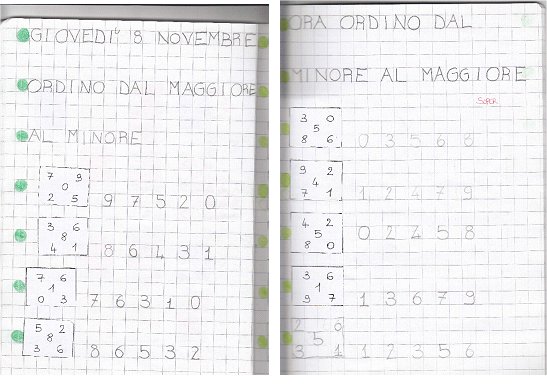 GIOVEDI' 8 NOVEMBRE
ORDINO DAL MAGGIORE
AL MINORE
7 9
0
2 5
9 7 5 2 0
3 6
8
4 1
8 6 4 3 1
7 6
1
0 3
7 6 3 1 0
5 2
8
3 6
8 6 5 3 2
ORA ORDINO DAL
MINORE AL MAGGIORE
SUPER
3 0
5
8 6
0 3 5 6 8
9 2
4
7 1
1 2 4 7 9
4 2
5
8 0
0 2 4 5 8
3 6
1
9 7
1 3 6 7 9
2 6
5
3 1
1 2 3 5 6